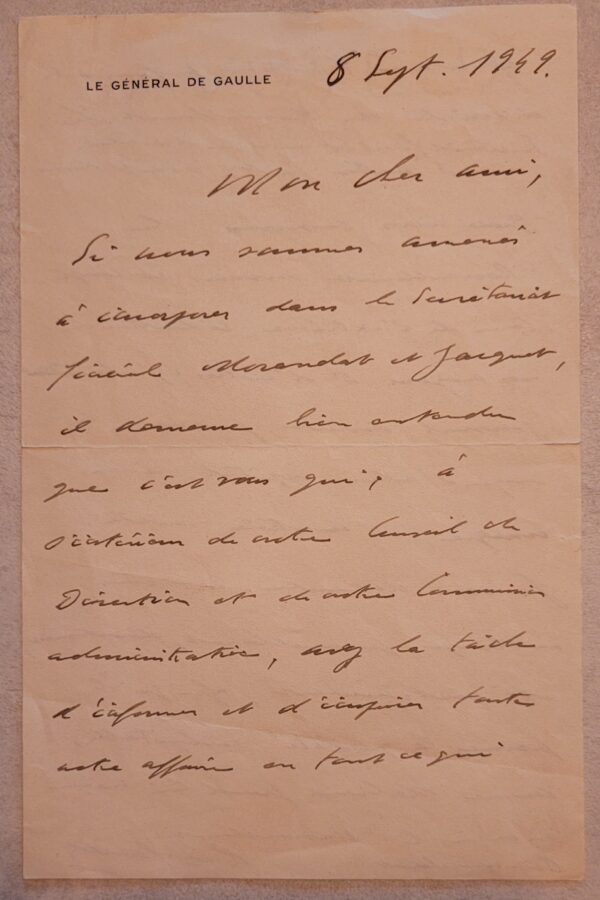 LE GÉNÉRAL DE GAULLE
8 Sept. 1949.
Mon cher ami,
Si nous sommes amenés
à incorporer dans le Secrétariat
Général Morandat et Jacquet,
il demeure bien entendu
que c'est vous qui, à
l'intérieur de notre Conseil de
Direction et de notre Commission
administrative, avez la tâche
d'informer et d'inspirer toute
notre affaire en tout ce qui